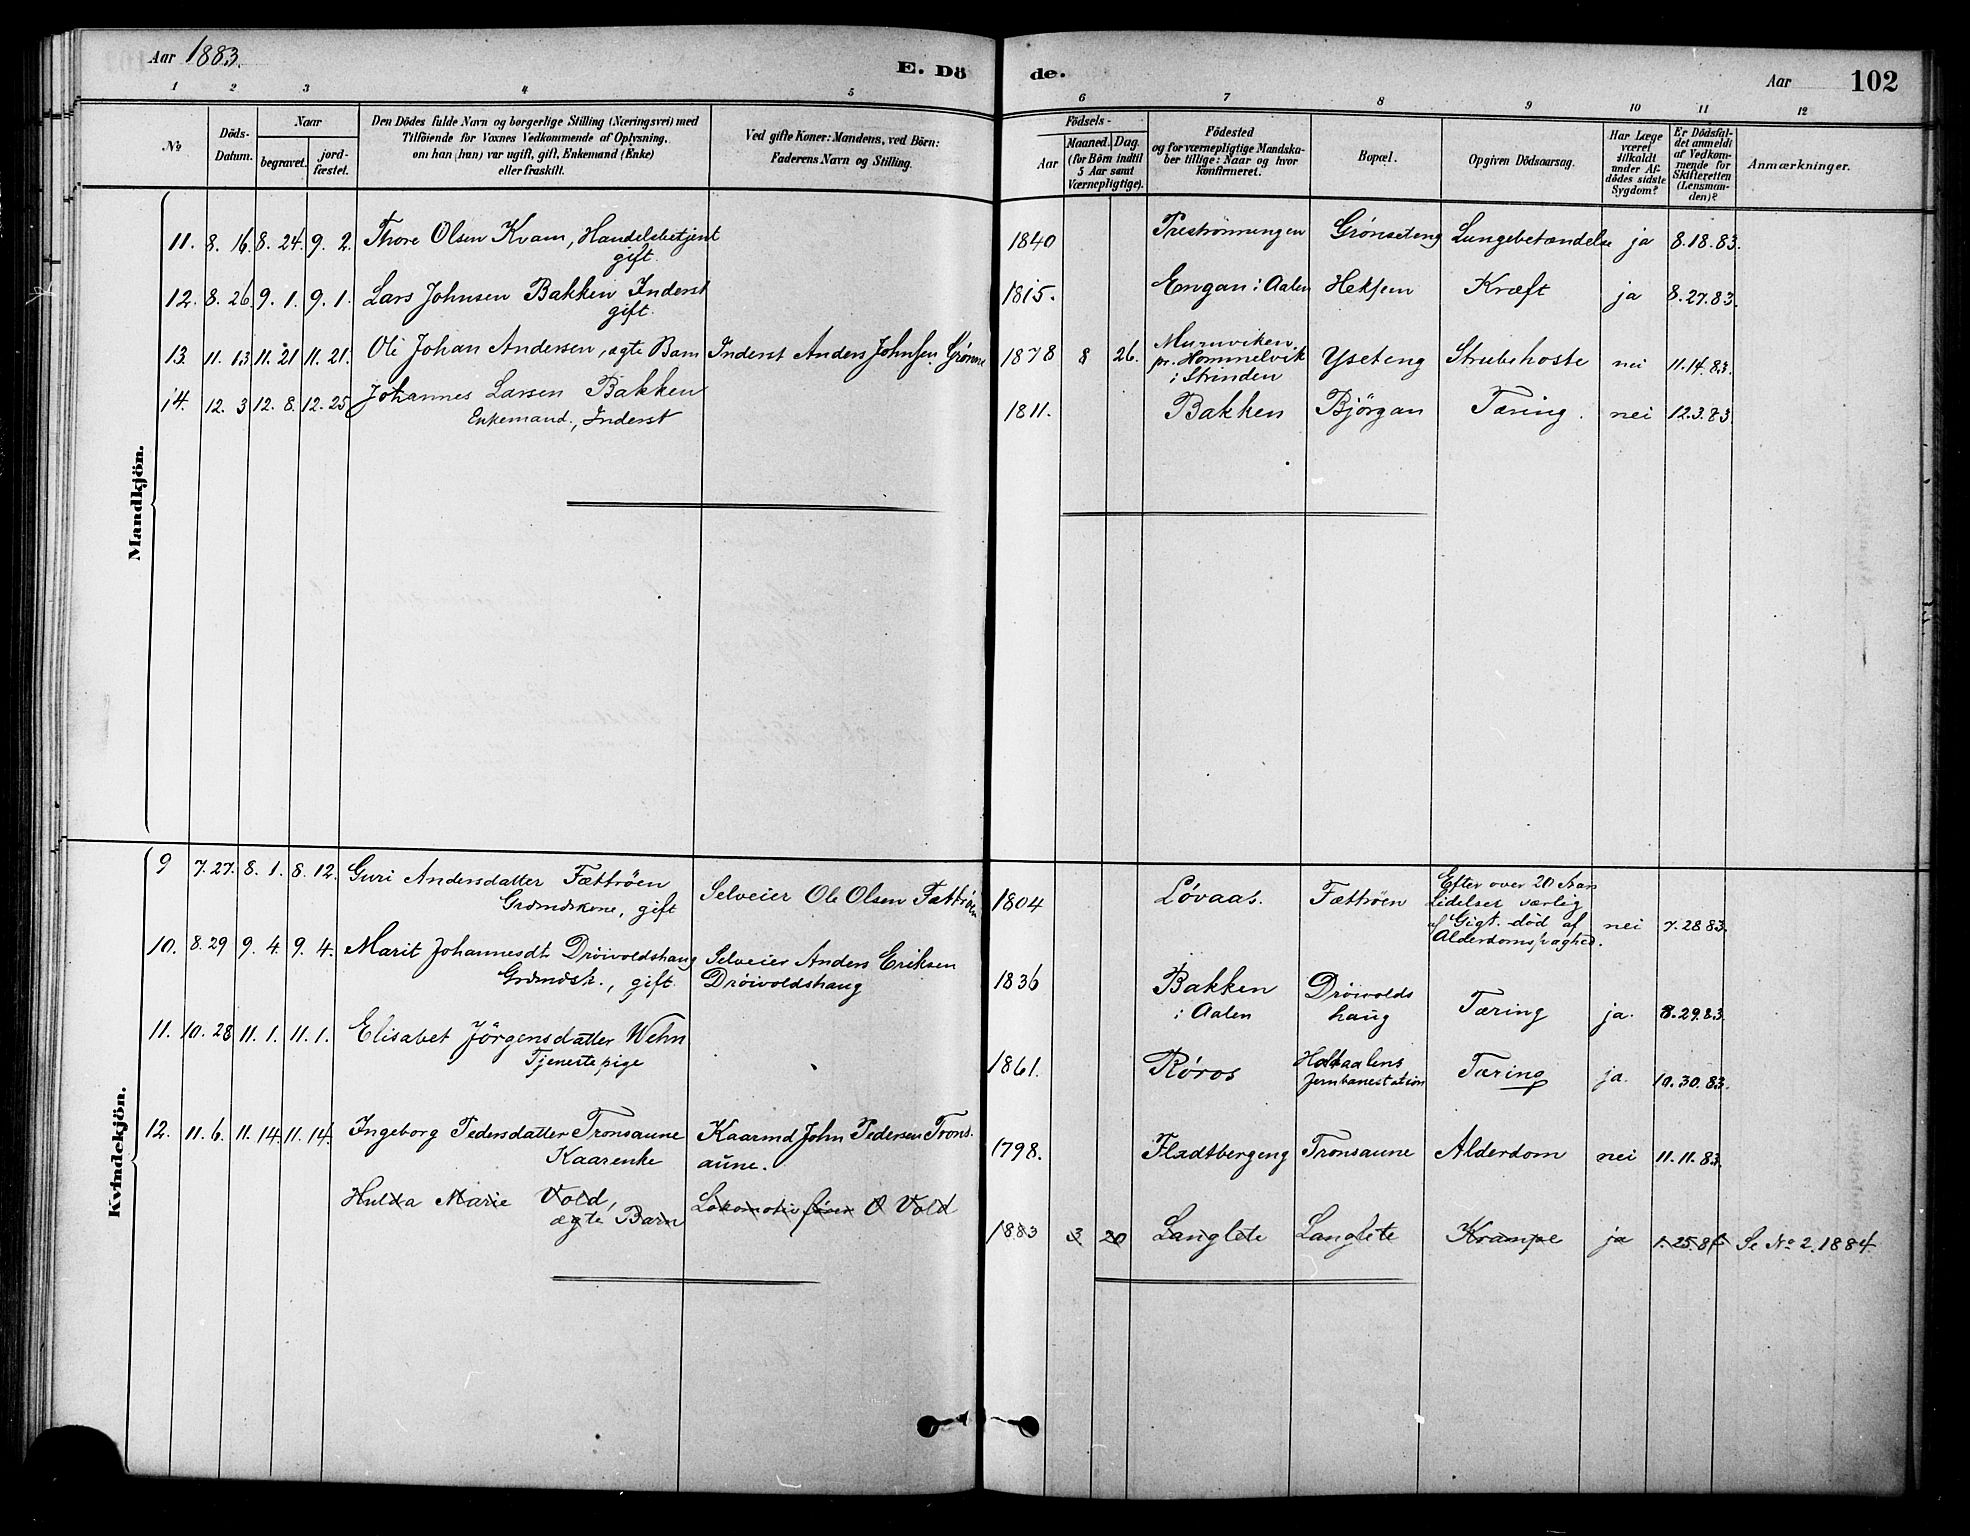 Aar 1883.
E. Dö
de.
Aar
102
1 2 3 4 5
6 7 8 9 10 11 12
No
Döds-
Datum.
Naar
begravet.
jord-
fæstet.
Den Dödes fulde Navn og borgerlige Stilling (Næringsvei) med
Tilföiende for Voxnes Vedkommende af Oplysning.
om han (hun) var ugift, gift, Enkemand (Enke)
eller fraskilt.
Ved gifte Koner: Mandens, ved Börn:
Faderens Navn og Stilling.
Födsels-
Aar
Maaned.
Dag.
(for Börn indtil
5 Aar samt
Værnepligtige).
Födested
og for værnepligtige Mandska-
ber tillige: Naar og hvor
konfirmeret.
Bopæl.
Opgiven Dödsaarsag.
Har Læge
været
tilkaldt
under Af-
dödes sidste
Sygdom?
Er Dödsfal-
det anmeldt
af Vedkom-
mende for
Skifteretten
(Lensman-
den)?
Anmærkninger.
Mandkjön.
11. 8. 16. 8. 24. 9. 2. Thore Olsen Kvam, Handelsbetjent
gift.
1840 Prestrønningen Grønseteng Lungebetændelse ja 8.18.83.
12. 8. 26. 9. 1. 9. 1. Lars Johnsen Bakken Inderst
gift.
1815. Engan i Aalen Heksem Kræft ja 8.27.83.
13. 11. 13. 11. 21 11. 21. Ole Johan Andersen, ægte Barn Inderst Anders Johnsen Grønne
1878 8 26. Muruviken
pr. Hommelvik
i Strinden
Yseteng Strubehoste nei 11.14.83.
14. 12. 3 12. 8. 12. 25. Johannes Larsen Bakken
Enkemand., Inderst
1811. Bakken Björgan Tæring. nei 12.3.83.
Kvindekjön.
9 7. 27. 8. 1. 8. 12. Guri Andersdatter Fættrøen
Grdmdskone, gift
Selveier Ole Olsen Fættrøen
1804 Løvaas. Fættrøen
Efter over 20 Aars
Lidelser særlig
af Gigt død af
Alderdomsvaghed.
nei 7.28 83.
10. 8. 29 9. 4. 9. 4. Marit Johannesdt. Drøivoldshaug
Grdmdsk., gift.
Selveier Anders Eriksen
Drøivoldshaug
1836 Bakken
i Aalen
Drøivolds
haug
Tæring ja. 8.29.83.
11. 10. 28 11. 1. 11. 1. Elisabet Jörgensdatter Wehn
Tjenestepige
1861. Røros Holtaalens
Jernbanestation
Tæring ja. 10.30.83.
12. 11. 6. 11. 14. 11. 14. Ingeborg Pedersdatter Tronsaune
Kaarenke
Kaarmd John Pedersen Trons.
aune.
1798. Fladtbergeng Tronsaune Alderdom nei 11.11.83.
Hulda Marie Vold,
ægte Barn
Lokomotivfører O Vold
1883 3 20 Langlete Langlete Krampe ja 1.25.84 Se No 2. 1884.